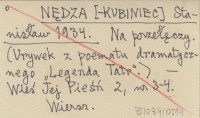 NĘDZA [-KUBINIEC] Sta-
nisław 1934. Na przełęczy.
(Urywek z poematu dramatycz-
nego „Legenda Tatr".) —
Wieś Jej Pieśń 2, nr 3-4.
Wiersz.